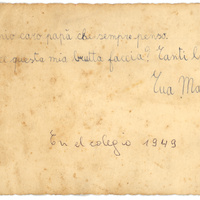 mio caro papà che sempre pensa
questa mia brutta faccia? Tanti
Tua Ma
En el colegio 1949